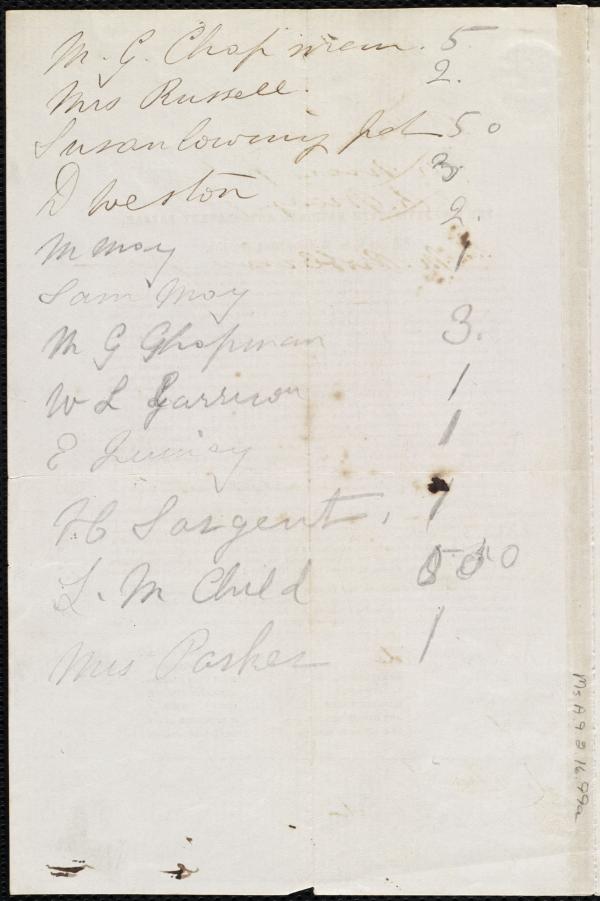 M. G. Chapman. 5.
Mrs Russell. 2.
Susan Cowing pd 50
D Weston 3
M May 2.
Sam May 1
M G Chapman 3.
W L Garrison 1
E Quincy 1
H Sargent, 1
L. M Child 5 50
Mrs Parker 1
Ms A.9.2.16.99a